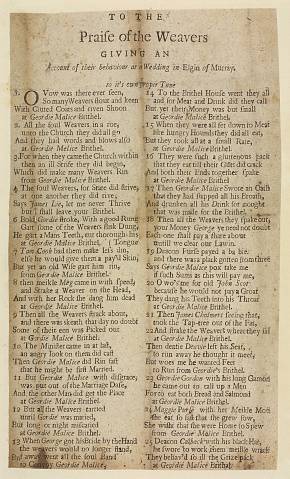 TO THE
Praise of the Weavers
GIVING AN
Account of their behaviour at a Wedding in Elgin of Murray.
to it's own proper Tune
O Vow was there ever seen,
So many Weavers stout and keen
With Cluted Coats and riven Shoon
at Geordie Malice Brithel.
2. All the soul Weavers in a row,
unto the Church they did all go
And they had words and blows also
at Geordie Malice Brithel.
3. For when they came the Church within
then an ill Strife they did begin,
Which did make many Weavers Rin
from Geordie Malice Brithel.
4 The soul Weavers, for Snae did strive,
at one another they did rive,
Says let me never Thrive
but I shall leave your Brithel.
with a good Rung
Gart some of the Weavers
He gart a Mans Tent, cut thorough his
at Geordie Malice Brithel, (Tongue
7 Tam Cock bad them make less din,
else he would give them a pay'd Skin,
But yet an old Wife gart him rin,
from Geordie Malice Brithel.
8 then meikle Meg came in with speed,
and Strake a Weaver on the Head,
And with her Rock she dang him dead
at Geordie Malice Brithel.
9 Then all the Weavers Strack about,
and there was skeath that day no doubt
Some of their een was Picked out
at Geordie Malice Brithel.
10 The Minister came in at last,
an angry look on them did cast
Then Geordie Malice did Rin fast
that he might be first Married.
11 But Geordie Malice with disgrace,
was put out of the Marriage Dass,
And the other Man did get the Place
at Geordie Malice Brithel.
12 But all the Weavers tarried
until Geordie was married,
But long or night miscarried
at Geordie Malice Brithel.
13 When George got his Bride by the Hand
the weavers would no longer stand,
But away went all the foul Band
to Convoy Geordie Malice.
14 To the Brithel House went they all
and for Meat and Drink did they call
But yet their Money was but small
at Geordie Malice Brithel.
15 When they were all set down to Meat
like hungry Hounds they did all eat,
But they took all at a small Rate,
at Geordie Malice Brithel.
16 They were such a gluttenous pack
that they eat till their Gides did crack
And both their Ends together spake
at Geordie Malice Brithel.
17 Then Geordie Malice Swore an Oath
that they had supped all his Broath,
And drunken all his Drink for nought
that was made for the Brithel.
18 Then all the Weavers they spake out,
your Money George ye need not doubt
Each one shall pay a share about
untill we clear our Lawin.
19 Deacon Fursh payed a ba bie.
and there was a plack gotten from three
Says Geordie Malice pox take me
if such Sums as this will pay me.
20 O wo's me for old John Scot
because he would not pay a Groat
They dang his Teeth into his Throat
at Geordie Malice Brithel.
21 Then James Chalmers seeing that,
took the Tap-tree out of the Fat,
22 And strake the Weavers where they sat
at Geordie Malice Brithel.
Then dentie Davvie left his Seat,
to rin away he thought it meet,
But woes me he wanted Feet
to Run from Geordie's Brithel.
23 Geordie Gordon with his long Gamon
he came out to call up a Men
For to eat both Bread and Salmond
at Geordie Malice Brithel.
24 Maggie Purse with her Meikle Mou
she eat so fast that she grew fow,
She wisht that she were Home to Spew
from Geordie Malice Brithel.
25 Deacon Calbeck with his black Hat,
he swore to work them meikle wrack
They behav'd so ill the Grice pack
at Geordie Malice Brithel.